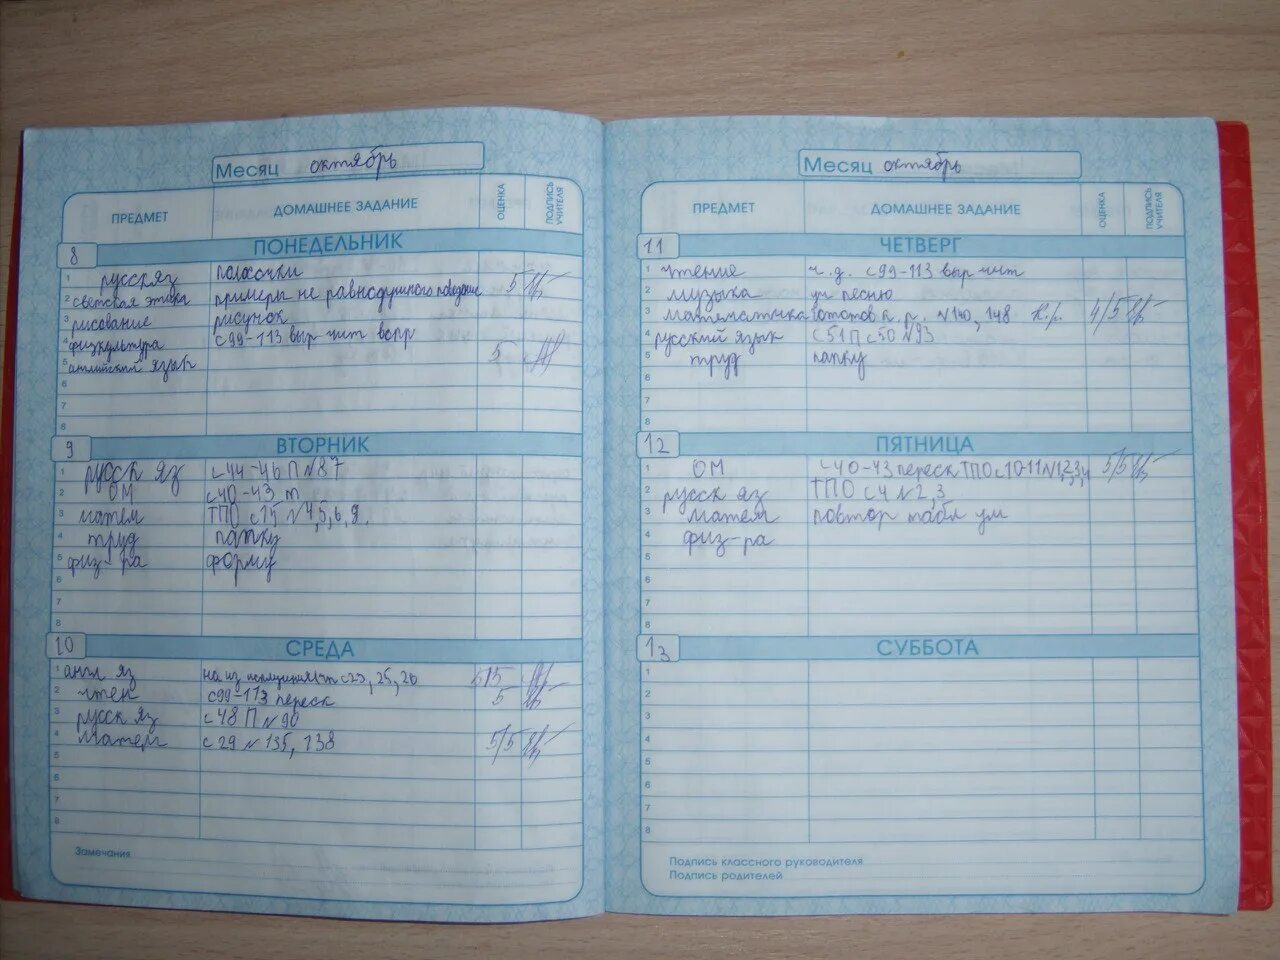 Месяц октябрь
ПРЕДМЕТ ДОМАШНЕЕ ЗАДАНИЕ ОЦЕНКА ПОДПИСЬ УЧИТЕЛЯ
8 ПОНЕДЕЛЬНИК
1 русск яз полосочки
2 светская этика примеры не равнодушного поведения 5
3 рисование рисунок
4 физкультура с 99-113 выр чит вопр
5 английский язык 5
6
7
8
9 ВТОРНИК
1 русск яз с 44-46 П №87
2 ОМ с 40-43 т
3 матем ТПО с 15 №4,5,6,9.
4 труд папку
5 физ-ра форму
6
7
8
10 СРЕДА
1 англ яз на из с 23, 25, 26 5/5
2 чтен с 99-113 переск 5
3 русск яз с 48 П №90
4 матем с 29 №135, 138 5/5
5
6
7
8
Замечания
Месяц октябрь
ПРЕДМЕТ ДОМАШНЕЕ ЗАДАНИЕ ОЦЕНКА ПОДПИСЬ УЧИТЕЛЯ
11 ЧЕТВЕРГ
1 чтение ч.д. с 99-113 выр чит
2 музыка уч песню
3 математика готов к.р. №140, 148 к.р. 4/5
4 русский язык с 51 П с 50 №93
5 труд папку
6
7
8
12 ПЯТНИЦА
1 ОМ с 40-43 переск ТПО с 10-11 №1,2,3,4 5/5
2 русск яз ТПО с 4 №2,3
3 матем повтор табл ум
4 физ-ра
5
6
7
8
13 СУББОТА
1
2
3
4
5
6
7
8
Подпись классного руководителя
Подпись родителей